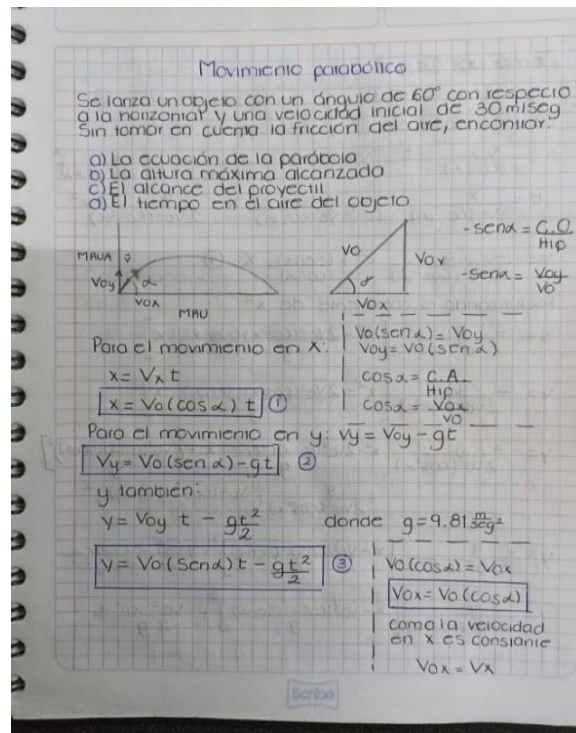 Movimiento parabólico
Se lanza un objeto con un ángulo de 60° con respecto
a la horizontal y una velocidad inicial de 30 m/seg
Sin tomar en cuenta la fricción del aire, encontrar:
a) La ecuación de la parábola
b) La altura máxima alcanzada
c) El alcance del proyectil
d) El tiempo en el aire del objeto
MRUA
Voy
α
Vox
MRU
Vo
Voy
α
Vox
- senα = C.O
Hip
- senα = Voy
Vo
Para el movimiento en x:
x = Vx t
x = Vo(cos α) t ①
Vo(sen α) = Voy
Voy = Vo(sen α)
cos α = C.A.
Hip
cos α = Vox
Vo
Para el movimiento en y: Vy = Voy - gt
Vy = Vo(sen α) - gt ②
y también:
y = Voy t - gt²
2
donde g = 9.81 m
seg²
y = Vo(Senα)t - gt²
2
③
Vo(cosα) = Vox
Vox = Vo(cosα)
como la velocidad
en x es constante
Vox = Vx
Scribe